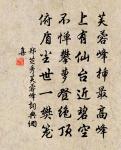 芙蓉峰插最高峰
上有仙台近碧空
不惮攀萝登绝顶
俯眉尘世一樊笼
郑芝秀芙蓉峰词典网